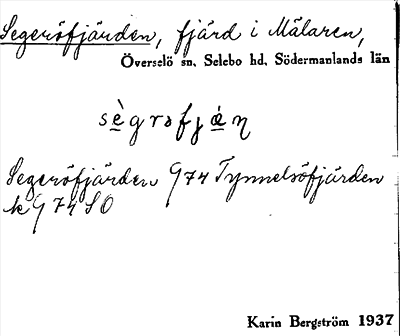 Segeröfjärden, fjärd i Mälaren,
Överselö sn, Selebo hd, Södermanlands län
sègrɔfjæ̀ṇ
Segeröfjärden G74 Tynnelsöfjärden
k G 74 SO
Karin Bergström 1937